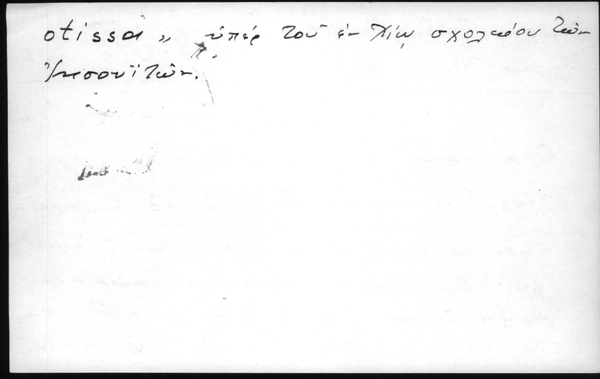 otissa „ ὑπέρ τοῦ ἐν Χίῳ σχολείου τῶν
Ἰησουϊτῶν.